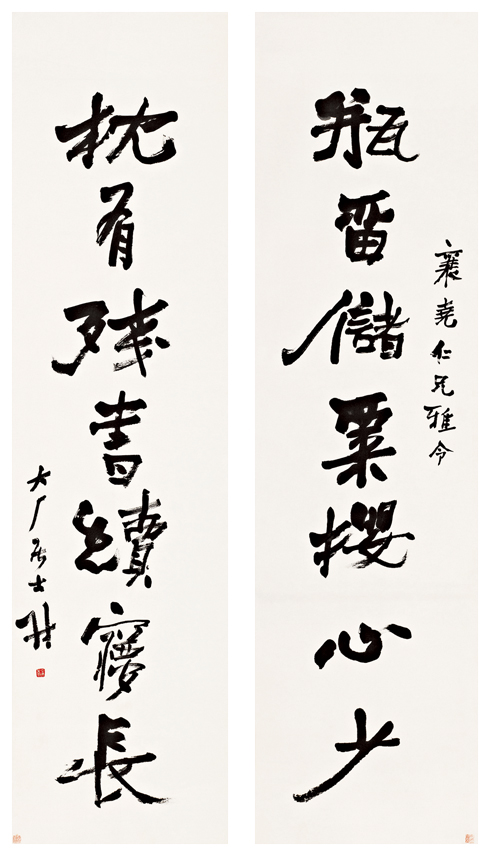 襄堯仁兄雅令
瓶留儲粟攖心少
枕有殘書續夢長
大厂居士